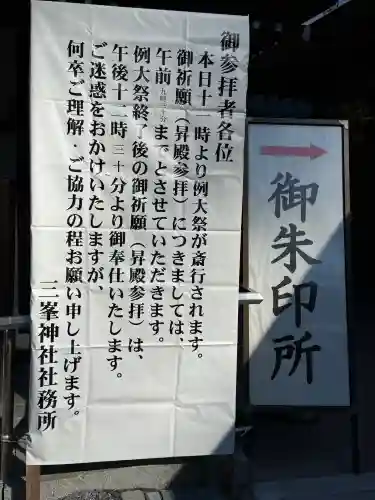 御参拝者各位
本日十一時より例大祭が斎行されます。
御祈願（昇殿参拝）につきましては、
午前九時三十分までとさせていただきます。
例大祭終了後の御祈願（昇殿参拝）は、
午後十二時三十分より御奉仕いたします。
ご迷惑をおかけいたしますが、
何卒ご理解・ご協力の程お願い申し上げます。
三峯神社社務所
御朱印所